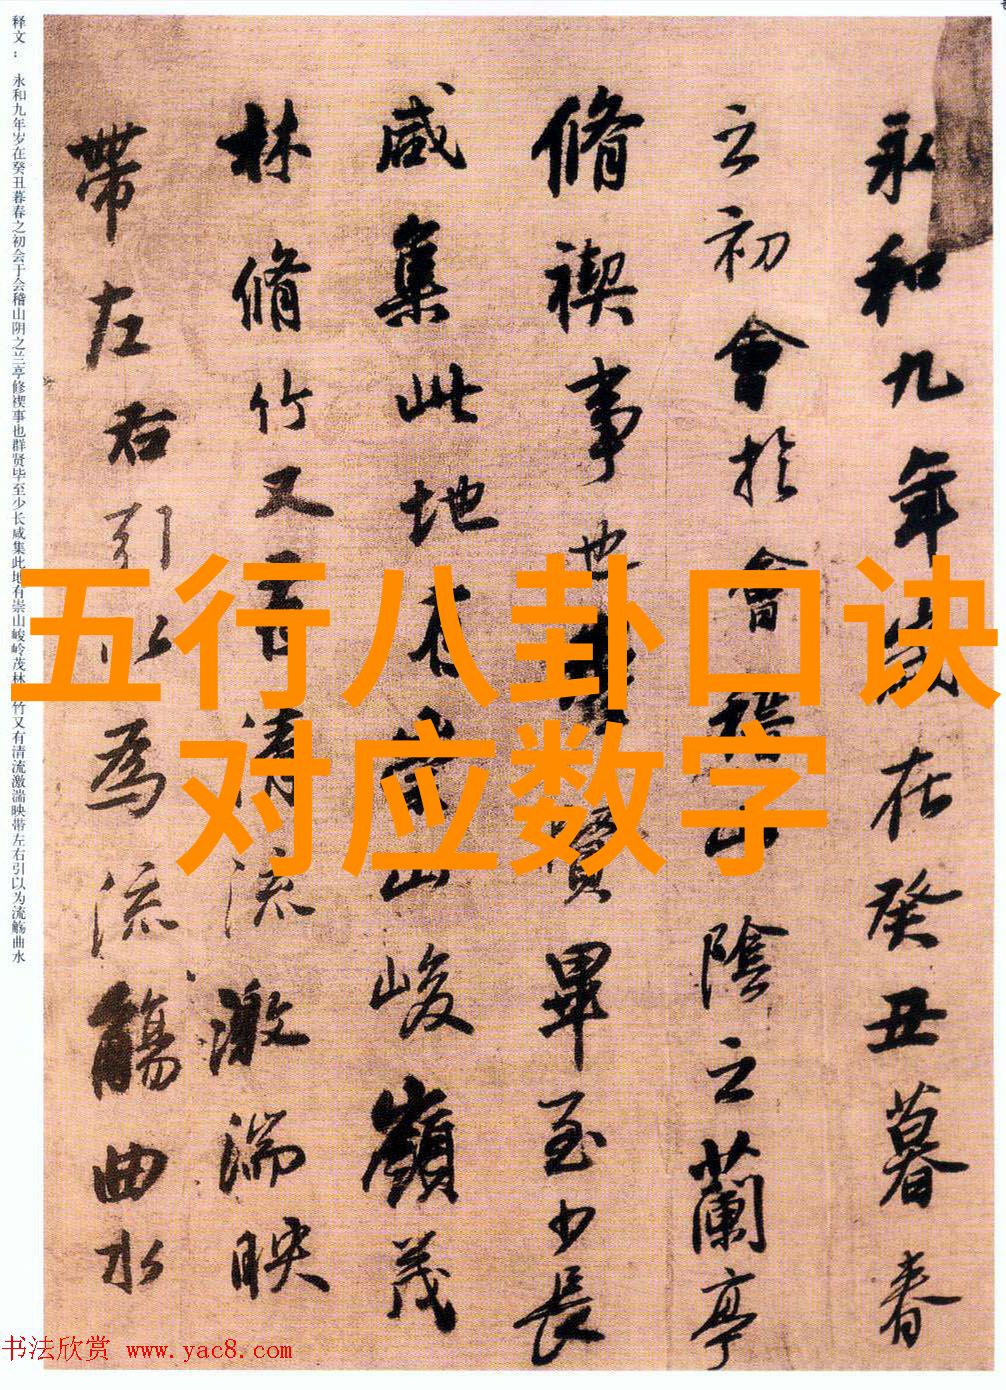 五行八卦口诀
对应数字
永和九年岁在癸丑暮春
之初會於會稽山陰之蘭亭
脩禊事也羣賢畢至少長
咸集此地有崇山峻嶺茂
林脩竹又有清流激湍映
帶左右引以為流觴曲水
释文：永和九年岁在癸丑暮春之初会于会稽山阴之兰亭修禊事也群贤毕至少长咸集此地有崇山峻岭茂林竹又有清流激湍映带左右引以为流觞曲水
书法欣赏 www.yac8.com